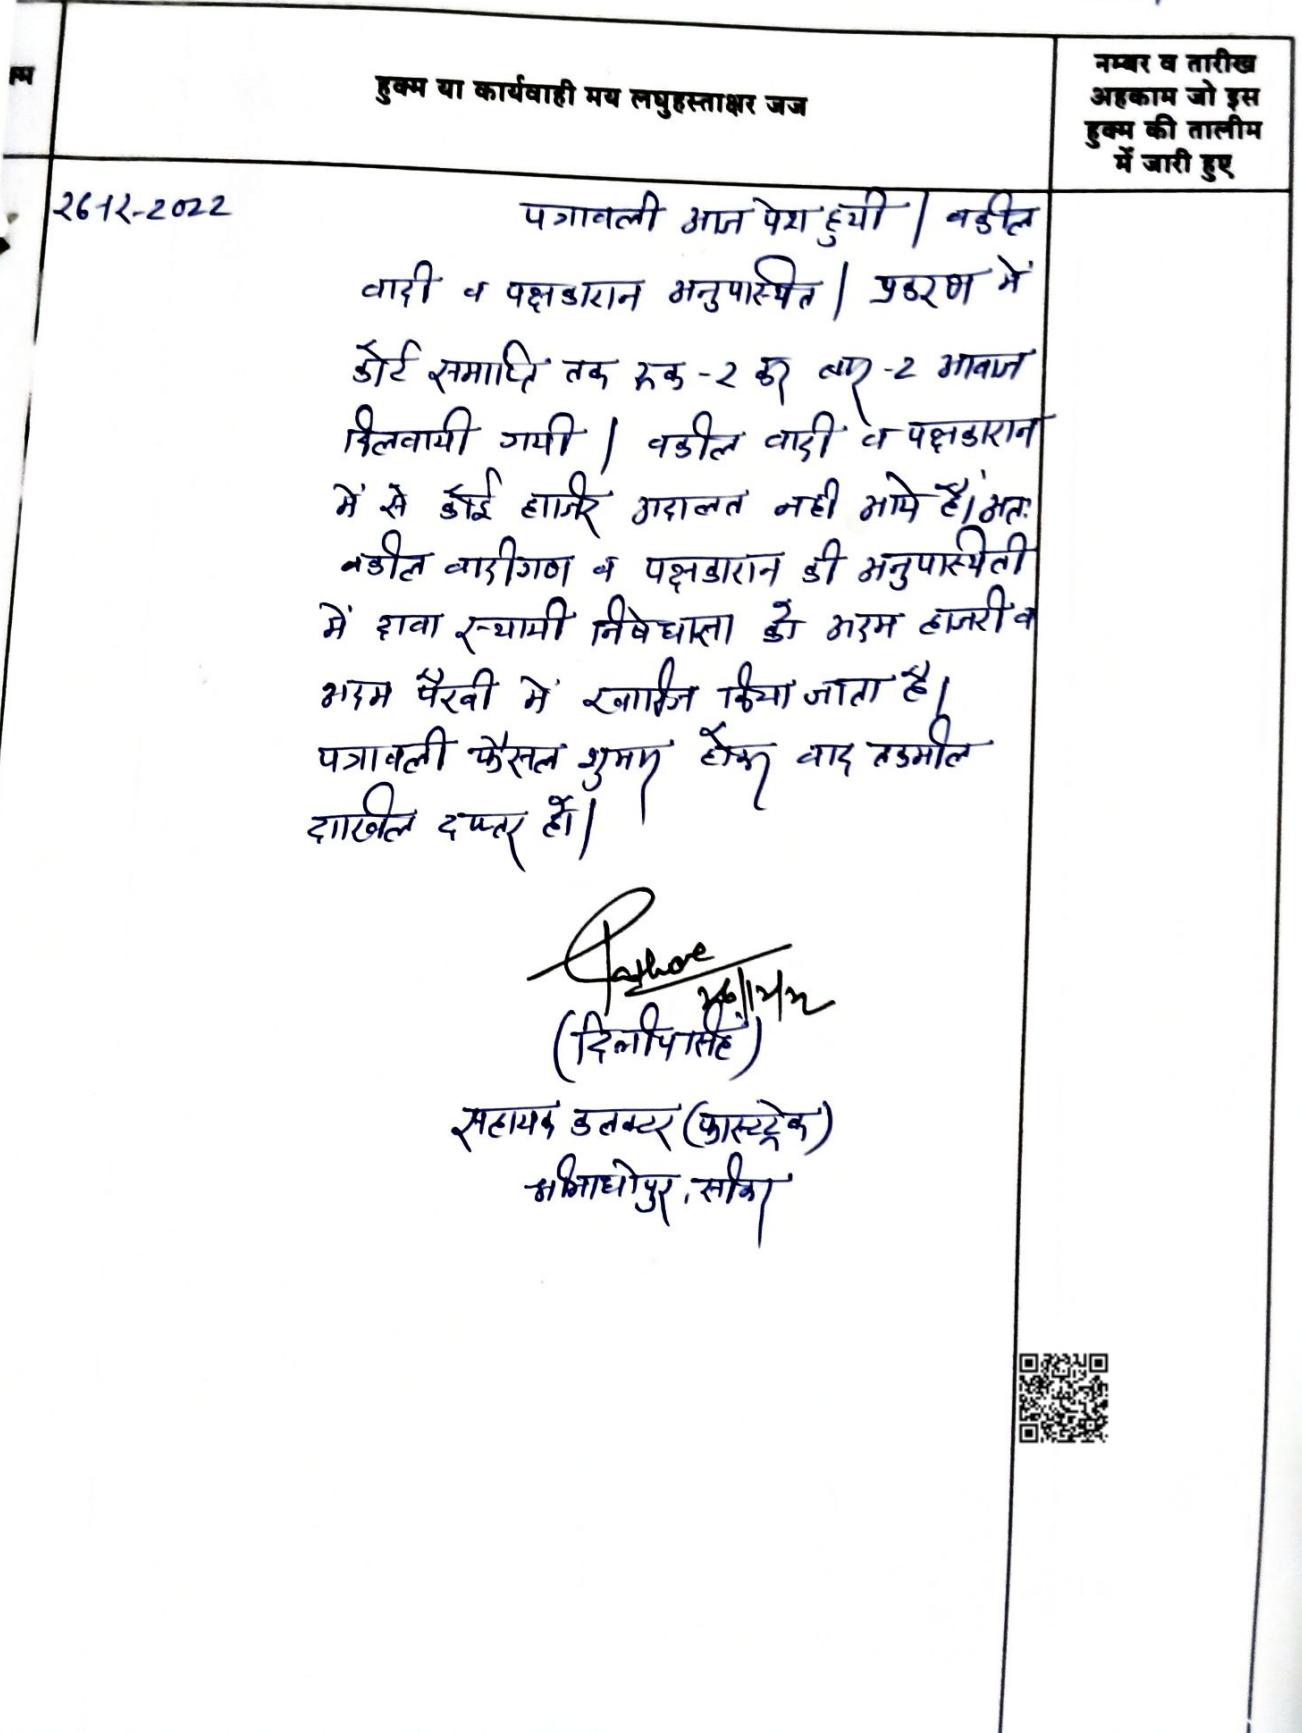 हुक्म या कार्यवाही मय लघुहस्ताक्षर जज
नम्बर व तारीख
अहकाम जो इस
हुक्म की तालीम
में जारी हुए
26-12-2022
पत्रावली आज पेश हुयी। वकील
वादी व पक्षकारान अनुपास्थित। प्रकरण में
कोर्ट समाप्ति तक रूक-2 कर बार-2 आवाज
दिलवायी गयी। वकील वादी व पक्षकारान
में से कोई हाजिर अदालत नही आये है। अतः
वकील वादीगण व पक्षकारान की अनुपास्थिती
में दावा स्थायी निषेधाज्ञा को अदम हाजरी व
अदम पैरवी में खारिज किया जाता है।
पत्रावली फैसल शुमार होकर बाद तकमील
दाखिल दफ्तर हो।
26/12/22
(दिलीपसिंह)
सहायक कलक्टर (फास्टट्रेक)
श्रीमाधोपुर, सीकर